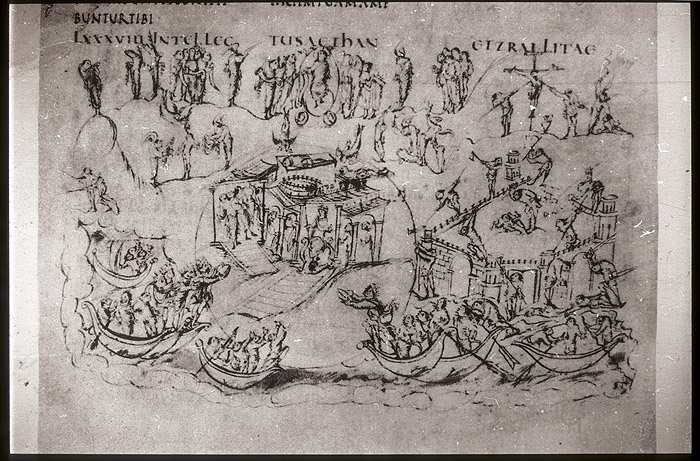 BUNTURTIBI
LXXXVIII INTELLEC TUSAETHAN ETZRALLITAE